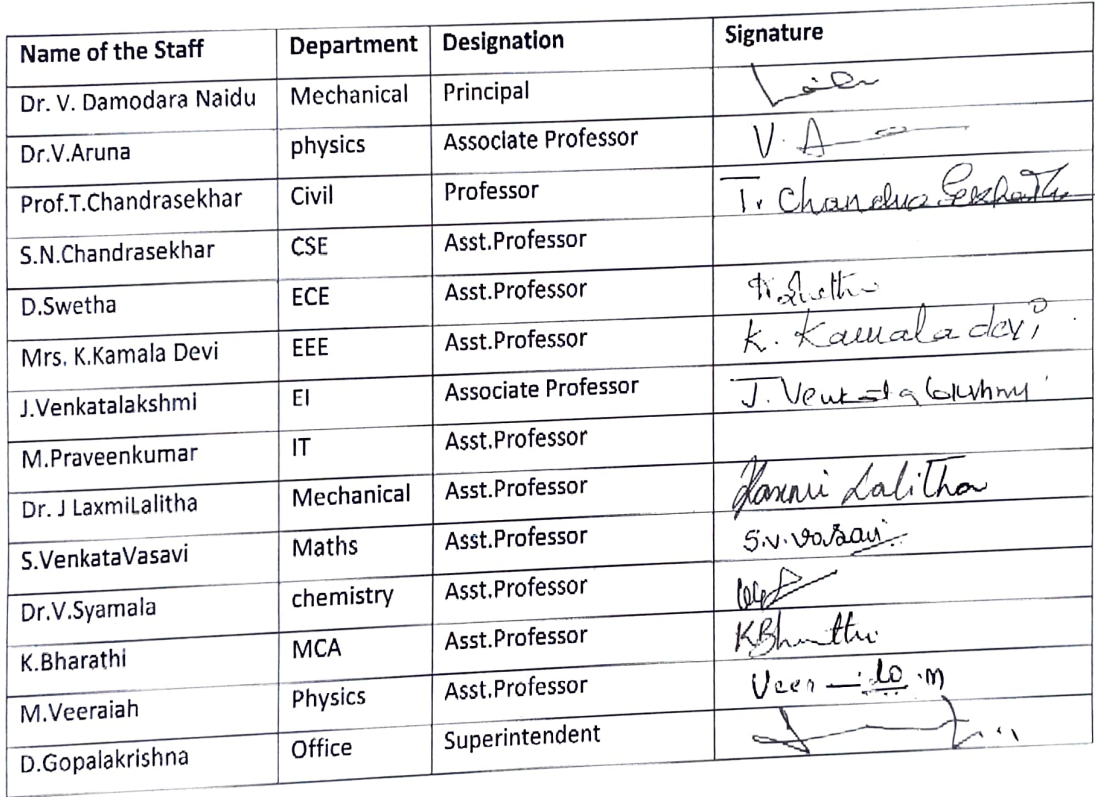 Name of the Staff Department Designation Signature
Dr. V. Damodara Naidu Mechanical Principal
Dr.V.Aruna physics Associate Professor V. A
Prof.T.Chandrasekhar Civil Professor T. Chandra Sekhar
S.N.Chandrasekhar CSE Asst.Professor
D.Swetha ECE Asst.Professor
Mrs. K.Kamala Devi EEE Asst.Professor K. Kamala devi
J.Venkatalakshmi EI Associate Professor J. Venkatalakshmi
M.Praveenkumar IT Asst.Professor
Dr. J LaxmiLalitha Mechanical Asst.Professor Laxmi Lalitha
S.VenkataVasavi Maths Asst.Professor S.V.Vasavi
Dr.V.Syamala chemistry Asst.Professor
K.Bharathi MCA Asst.Professor KBharathi
M.Veeraiah Physics Asst.Professor
D.Gopalakrishna Office Superintendent